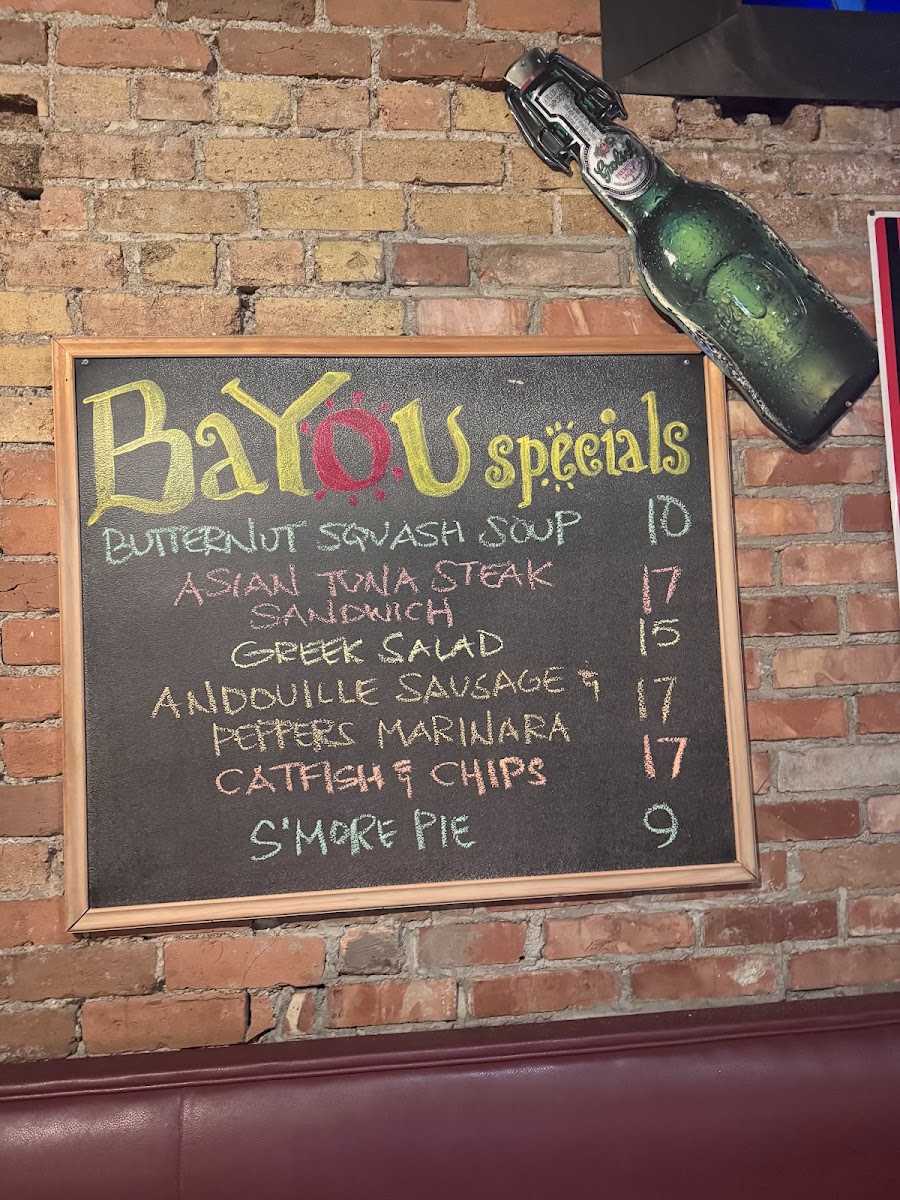 Grolsch
BaYou specials
BUTTERNUT SQUASH SOUP 10
ASIAN TUNA STEAK 17
SANDWICH
GREEK SALAD 15
ANDOUILLE SAUSAGE & 17
PEPPERS MARINARA
CATFISH & CHIPS 17
S'MORE PIE 9